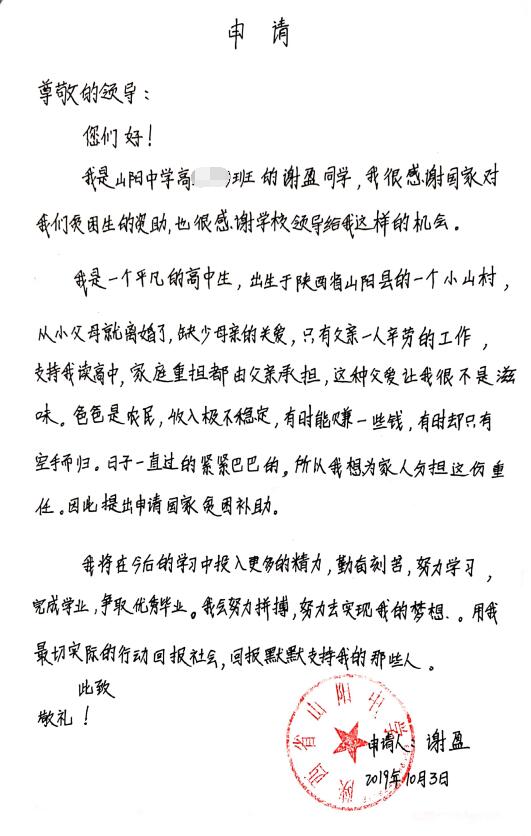 申 请
尊敬的领导：
您们好！
我是山阳中学高 班的谢盈同学，我很感谢国家对
我们贫困生的资助，也很感谢学校领导给我这样的机会。
我是一个平凡的高中生，出生于陕西省山阳县的一个小山村，
从小父母就离婚了，缺少母亲的关爱，只有父亲一人辛劳的工作，
支持我读高中，家庭重担都由父亲承担，这种父爱让我很不是滋
味。爸爸是农民，收入极不稳定，有时能赚一些钱，有时却只有
空手而归。日子一直过的紧紧巴巴的，所以我想为家人分担这份重
任。因此提出申请国家贫困补助。
我将在今后的学习中投入更多的精力，勤奋刻苦，努力学习，
完成学业，争取优秀毕业。我会努力拼搏，努力去实现我的梦想．。用我
最切实际的行动回报社会，回报默默支持我的那些人。
此致
敬礼！
陕西省山阳中学
申请人：谢盈
2019年10月3日